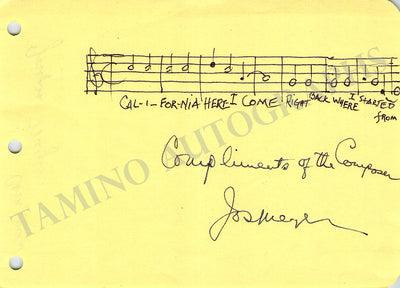 CAL-I-FOR-NIA HERE I COME RIGHT BACK WHERE I STARTED
FROM
Compliments of the Composer
Jos Meyer
TAMINO AUTOGRAPHS